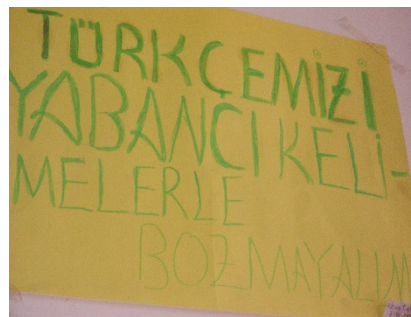 TÜRKÇEMİZİ
YABANCI KELİ-
MELERLE
BOZMAYALIM